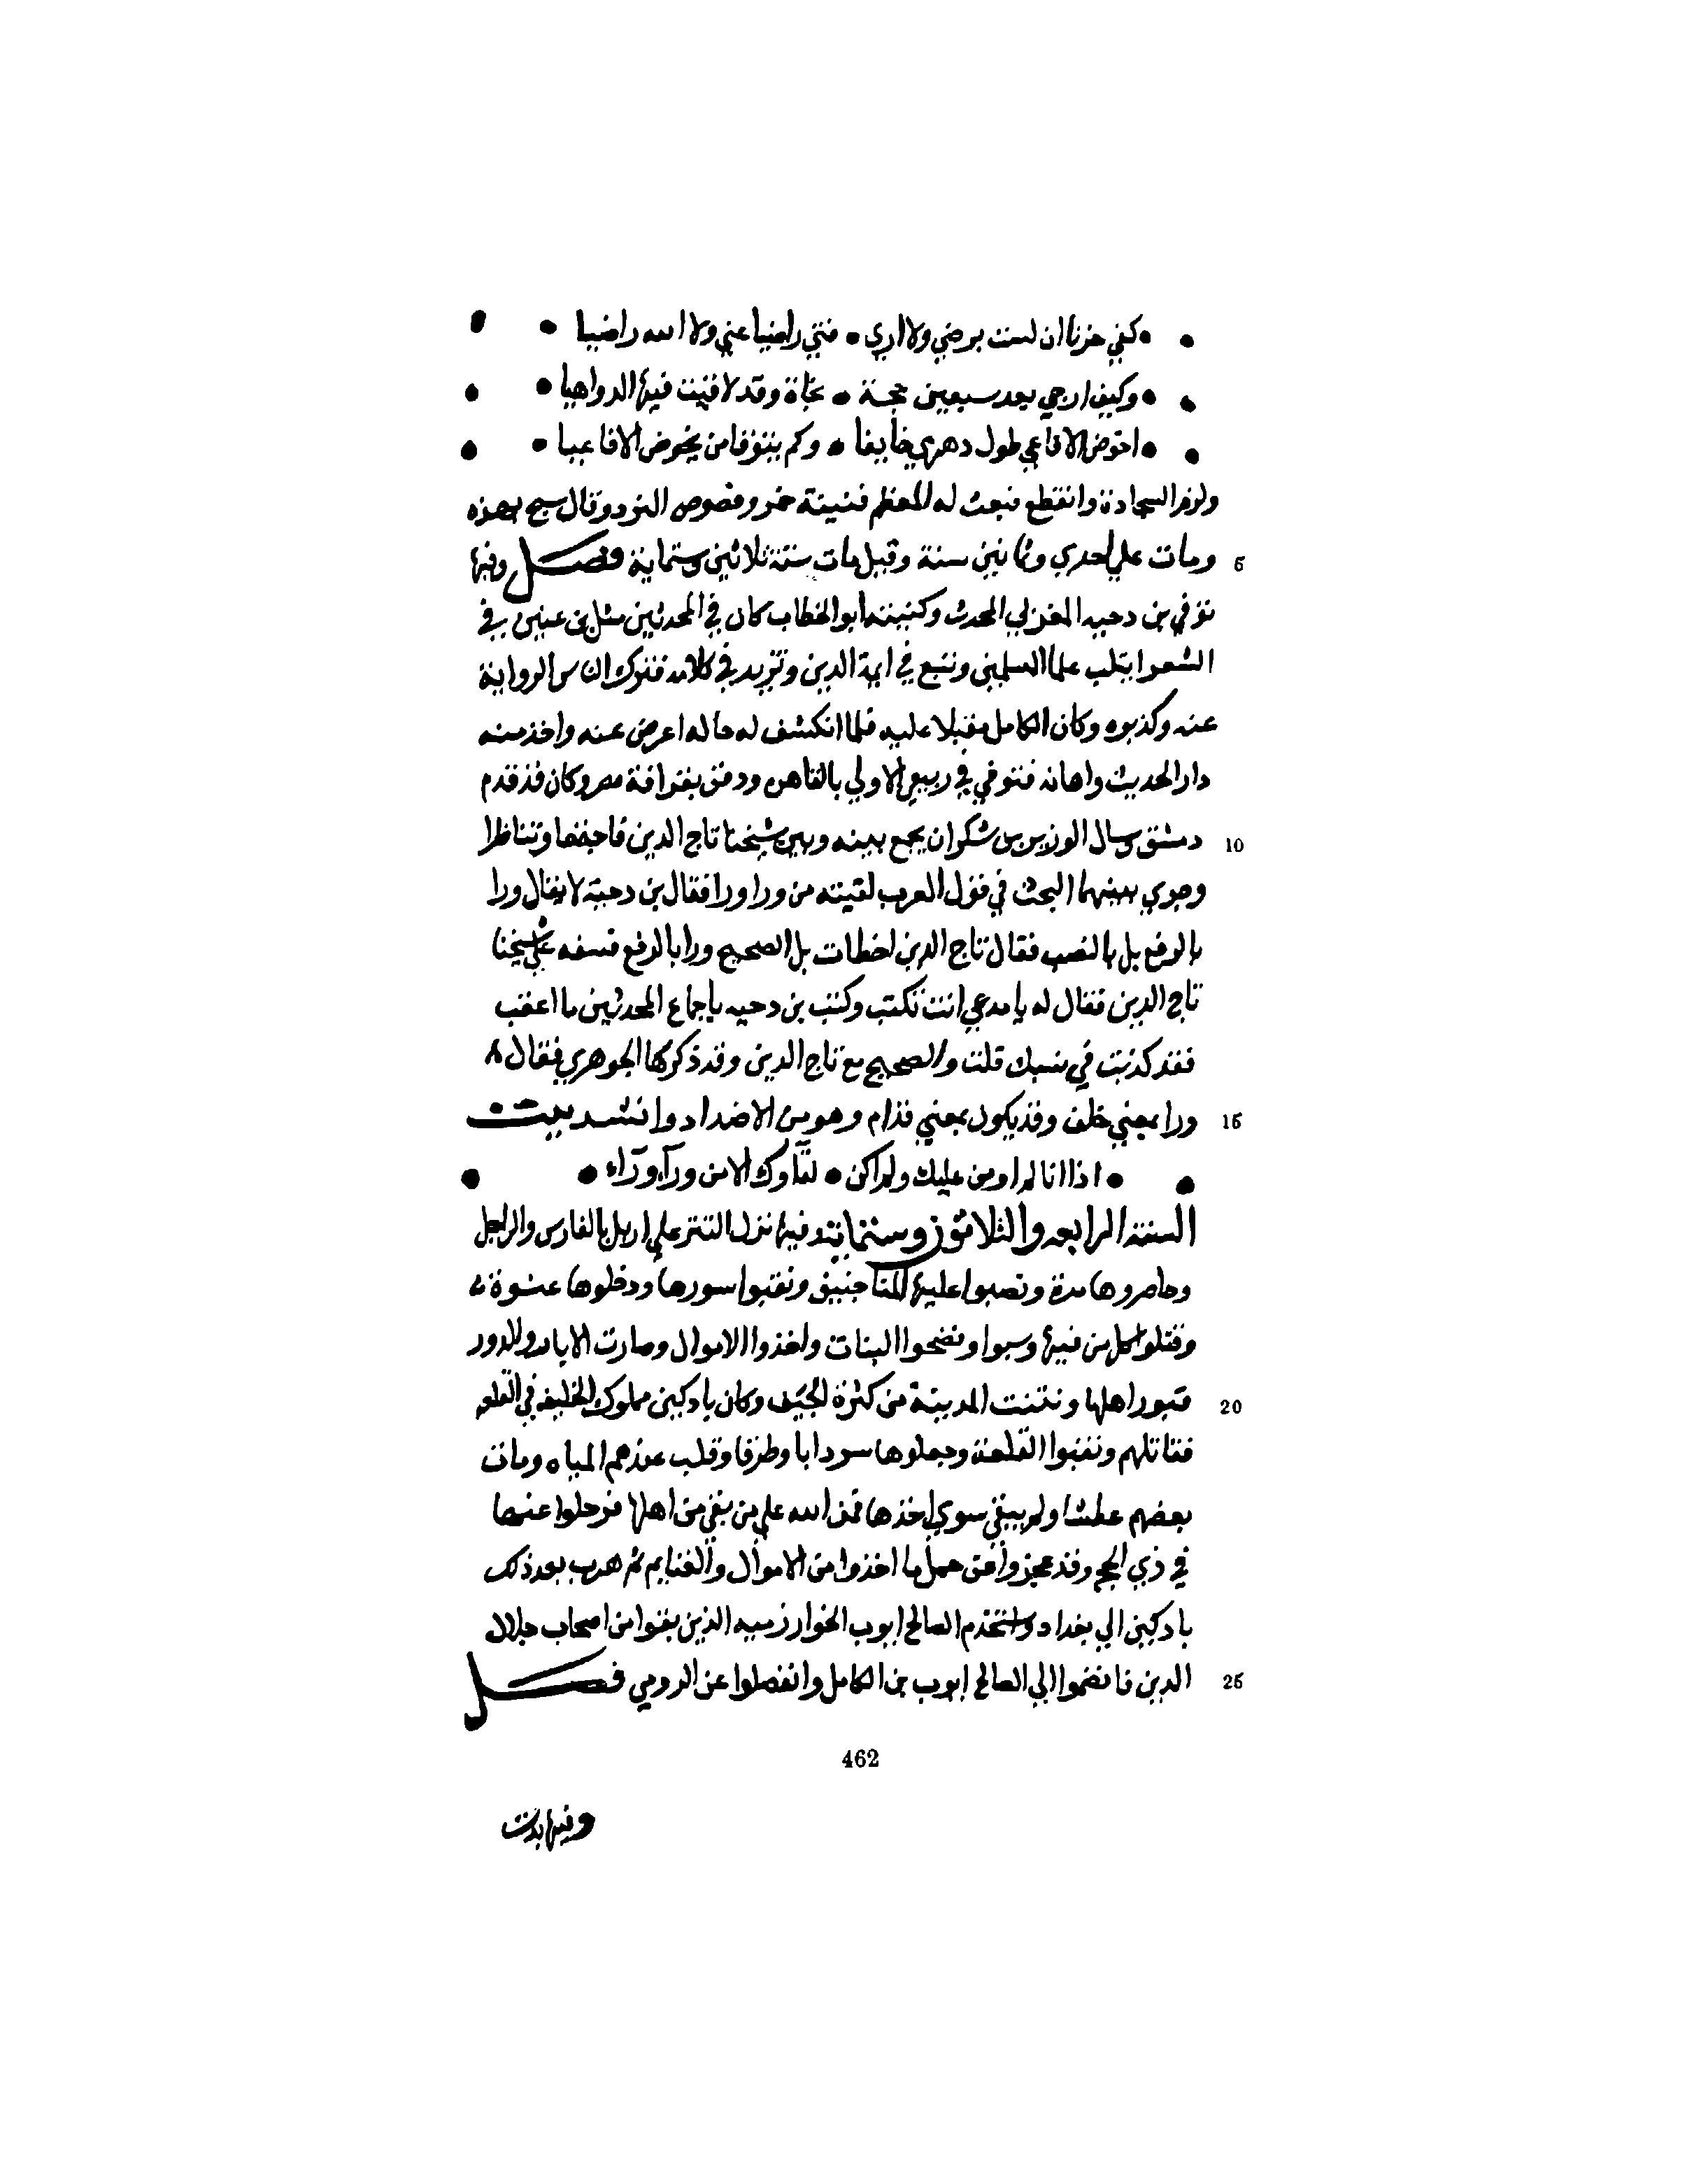 • • كفي حزنا ان لست برضي ولا اري • فتي راضيا عني ولا الله راضيا • •
• • وكيف ارجي بعد سبعين حجة • نجاة وقد لاقيت فيها الدواهيا • •
• • اخوض الافاعي طول دهري خايفا • وكم يتوقا من يخوض الافاعيا • •
ولزم السجادة وانقطع فبعث له المعظم قنينة خمر وفصوص النرد وقال سبح بهذه
5 ومات علي احدي وثمانين سنة وقيل مات سنة ثلاثين وستماية فصل وفيها
توفي بن دحيه المغربي المحدث وكنيته ابو الخطاب كان في المحدثين مثل بن عنين في
الشعرا يثلب علما المسلمين ويقع في ايمة الدين وتزيد في كلامه فترك الناس الرواية
عنه وكذبوه وكان الكامل مقبلا عليه فلما انكشف له حاله اعرض عنه واخذ منه
دار الحديث واهانه فتوفي في ربيع الاولي بالقاهره ودفن بقرافة مصر وكان قد قدم
10 دمشق وسال الوزير بن شكر ان يجمع بينه وبين شيخنا تاج الدين فاجتمعا وتناظرا
وجري بينهما البحث في قول العرب لقيته من ورا ورا فقال بن دحية لا يقال ورا
بالرفع بل بالنصب فقال تاج الدين اخطات بل الصحيح ورا بالرفع فسفه علي شيخنا
تاج الدين فقال له يا مدعي انت تكتب وكتب بن دحيه باجماع المحدثين ما اعقب
فقد كذبت في نسبك قلت والصحيح مع تاج الدين وقد ذكرها الجوهري فقال
15 ورا بمعني خلف وقد يكون بمعني قدام وهو من الاضداد وانشد بيت
• • اذا انا لم اومن عليك ولم اكن • لقاوك الا من ورآ ورآء • •
السنة الرابعه والثلاثون وستماية وفيها نزل التتر علي اربل بالفارس والراجل
وحاصروها مدة ونصبوا عليها المناجنيق ونقبوا سورها ودخلوها عنوة
وقتلوا كل من فيها وسبوا وفضحوا البنات واخذوا الاموال وصارت الابار والدور
20 قبور اهلها ونتنت المدينة من كثرة الجيف وكان بادكين مملوك الخليفه في القلعه
فقاتلهم ونقبوا القلعة وجعلوها سردابا وطرقا وقلب عندهم المياه ومات
بعضهم عطشا ولم يبقي سوي اخذها فمن الله علي من بقي من اهلها فرحلوا عنها
في ذي الحج وقد عجزوا عن حمل ما اخذوا من الاموال والغنايم ثم هرب بعد ذلك
بادكين الي بغداد واستخدم الصالح ايوب الخوارزميه الذين بقوا من اصحاب جلال
25 الدين فانضموا الي الصالح ايوب بن الكامل وانفصلوا عن الرومي فصل
462
وفيها بدت